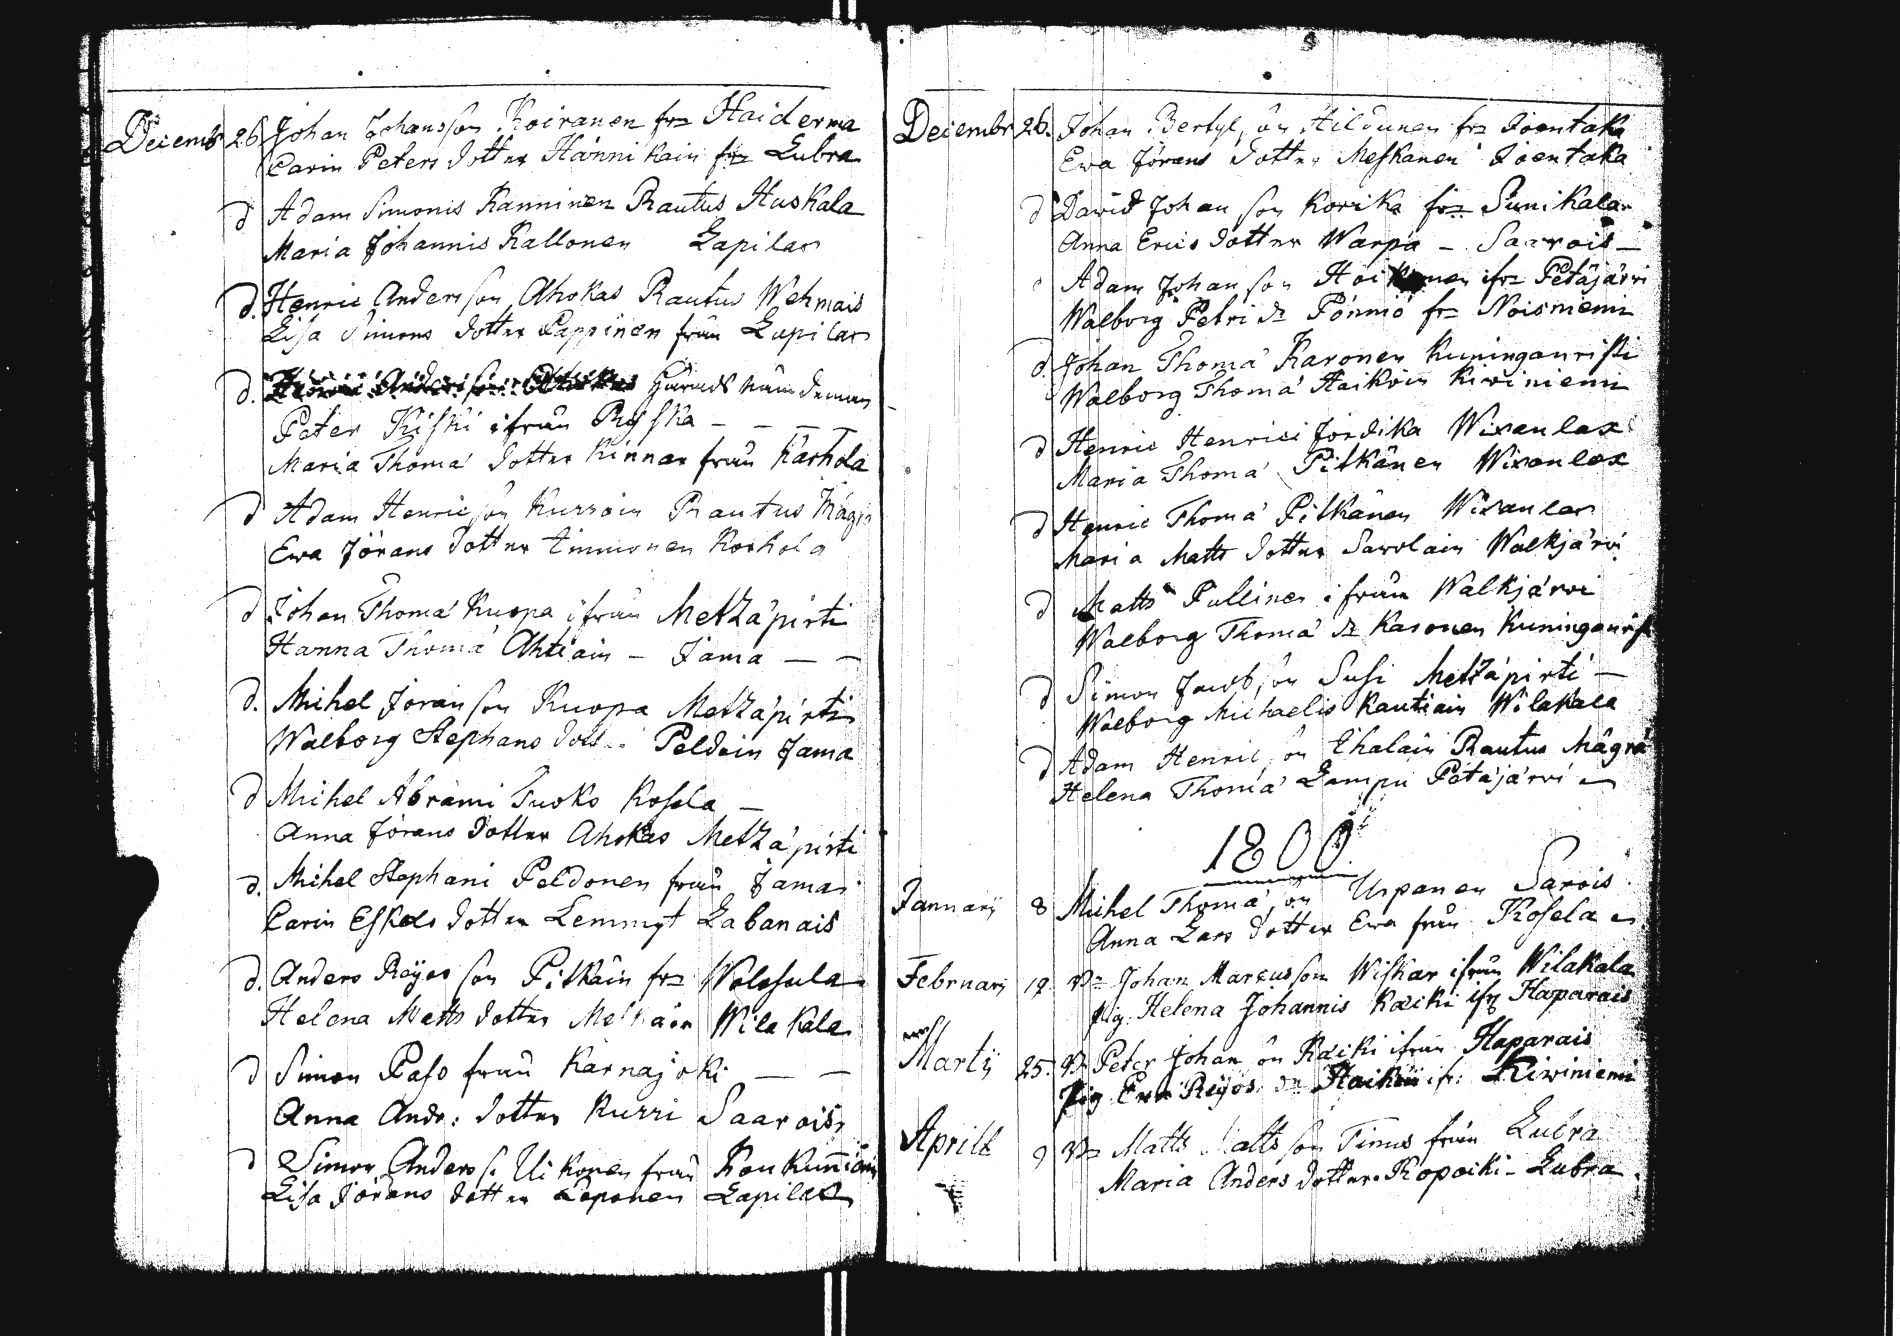 Decembr 26 Johan Johansson Koiranen frn Haiderma
Carin Peters dotter Hännikain frn Lubra
d Adam Simonis Ranninen Rautus Huskala
Maria Johannis Kallonen Lapilax
d. Henric Andersson Ahokas Rautus Wehmais
Lisa Simons dotter Pappinen från Lapilax
d. Härads nämdeman
Peter Kiski ifrån Ryska
Maria Thomä dotter Kinnar från Karhola
d Adam Henricson Kurroin Rautus
Ewa Jörans dotter Timmonen Korhola
d Johan Thomä Kuopa ifrån Metzäpirti
Hanna Thomä Ahtiain - Jama - -
d. Mihel Jöranson Kuopa Metzäpirti
Walborg Stephans Peldoin Jama
d Mihel Abrami Tuoko Kosela -
Anna Jörans dotter Ahokas Metzäpirti
d. Mihel Stephani Peldonen från Jama
Carin Eskels dotter Lemmyt Labanais
d. Anders Reijos son Pitkäin frn
Helena Matts dotter Wilakala
d Simon Paso från Karnajoki - -
Anna Andr: dotter Kurri Saarois
d Simon Anders s. Uikonen från
Lisa Jörans dotter Leponen Lapilax
Decembr 26. Johan Bertilson Hildunen frn Joentaka
Ewa Jörans dotter Meskanen Joentaka
d David Johan son Korika frn Sunikala
Anna Erics dotter Warpa - Saarois -
Adam Johan son ifrn Petäjärvi
Walborg Petri dr Pönniö frn Noisniemi
d. Johan Thomä Karonen Kuninganristi
Walborg Thomä Haikoin Kiviniemi
d Henric Henrici Jordika Wixanlax
Maria Thomä Pitkänen Wixanlax
d Henric Thomä Pitkänen Wixanlax
Maria Matts dotter Savolain Walkjärvi
d Matts Pullinen ifrån Walkjärvi
Walborg Thomä dr Karonen Kuninganrist
d Simon Jacobson Susi Metzäpirti -
Walborg Michaelis Kautiain Wilakala
d Adam Henricson Ehalain Rautus Mägrä
Helena Thomä Lampu Petäjärvi
1800
Januarij 8 Mihel Thomäson Urpanen Sarois
Anna Lars dotter Ewa från Kosela
Februarij Dr Johan Marcusson Wiskar ifrån Wilakala
pig. Helena Johannis Kaiki ifr Haparais
Martij 25. Dr Peter Johanson Kaiki ifrån Haparais
Pig Ewa Reijos dr Haikoi ifr: Kiviniemi
Aprill 9 Dr Matts Mattsson Timus från Lubra
Maria Anders dotter Kopoiki - Lubra